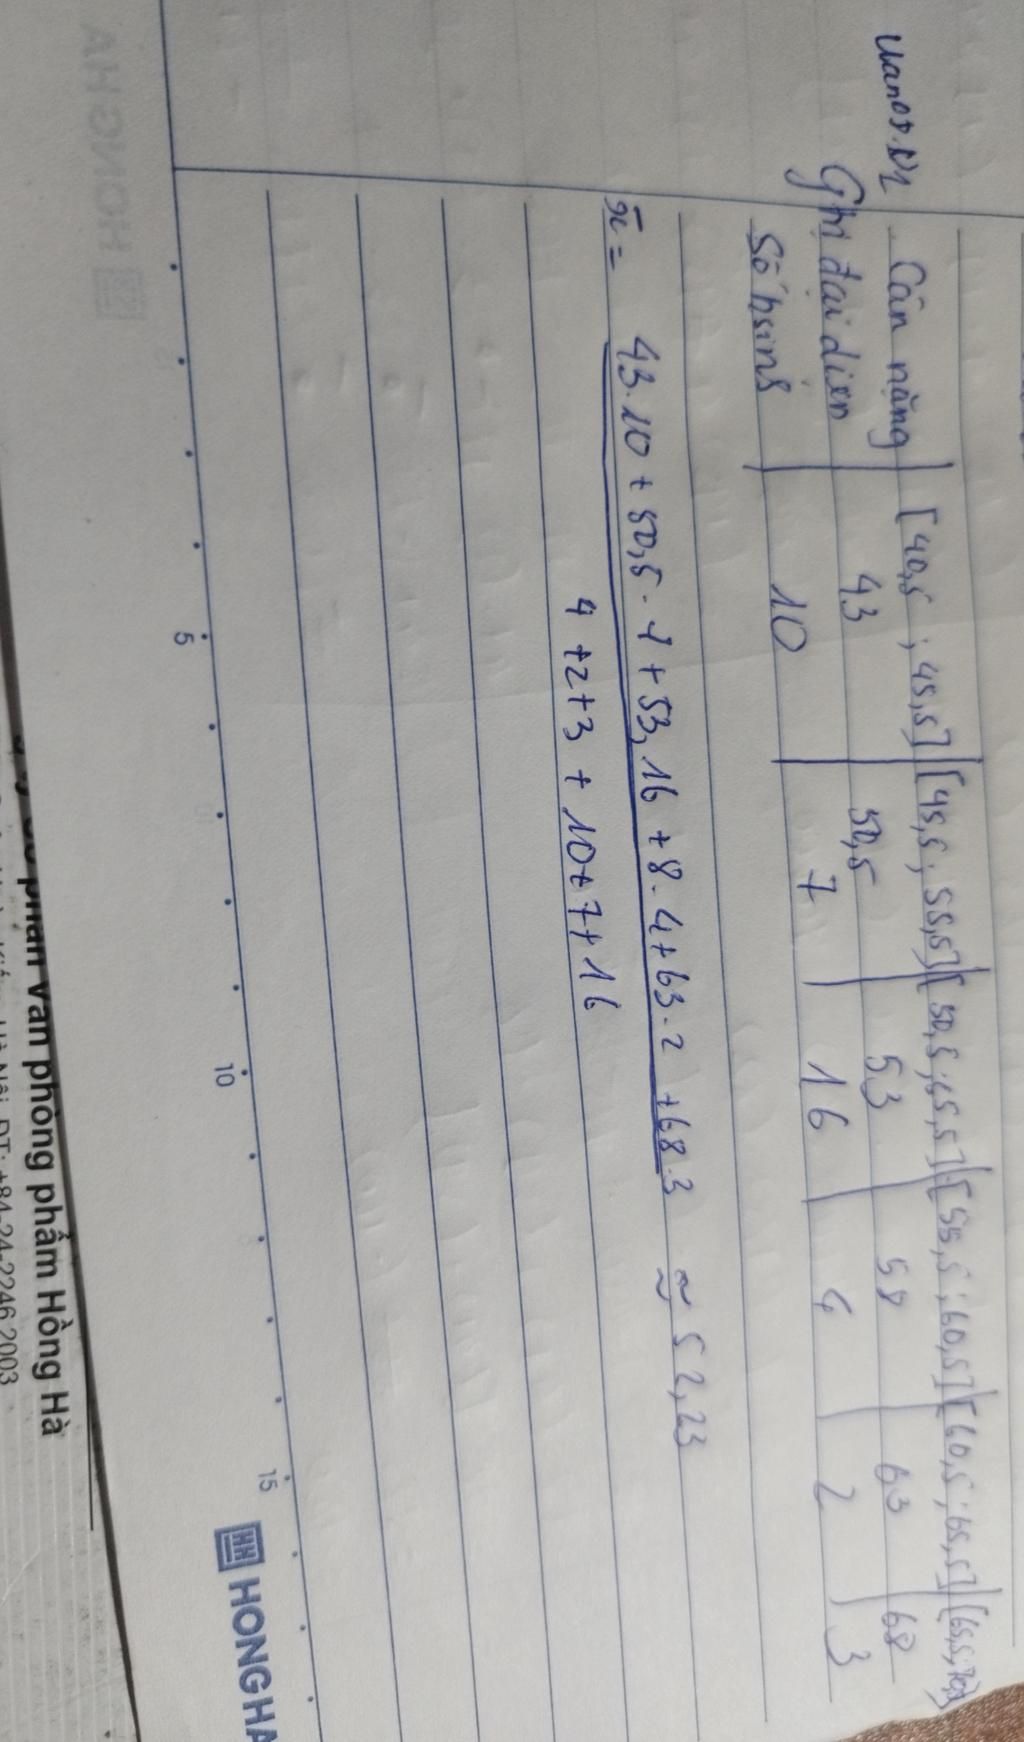 Cân nặng [40,5 ; 45,5] [45,5 ; 55,5] [50,5 ; 55,5] [55,5 ; 60,5] [60,5 ; 65,5]
Ghị đại diện 43 50,5 53 58 63 68
Số hsinh 10 7 16 4 2 3
x̄ = 43.10 + 50,5 . 7 + 53, 16 + 8 . 4 + 63 . 2 + 68.3 ≈ 52,23
4 + 2 + 3 + 10 + 7 + 16
5 10 15
HONGHA
phẩn văn phòng phẩm Hồng Hà
ĐT: +84-24-2246 2003